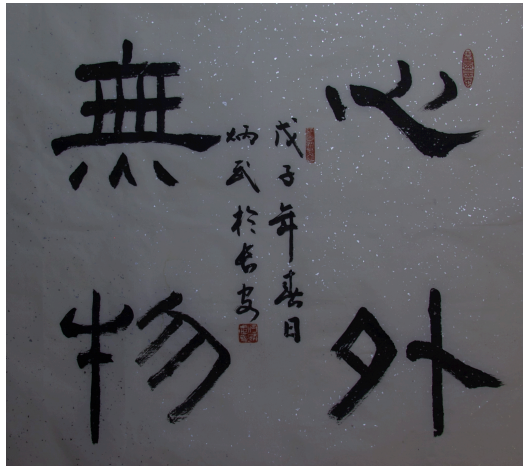 心外
無物
戊子年春日
炳武於長安